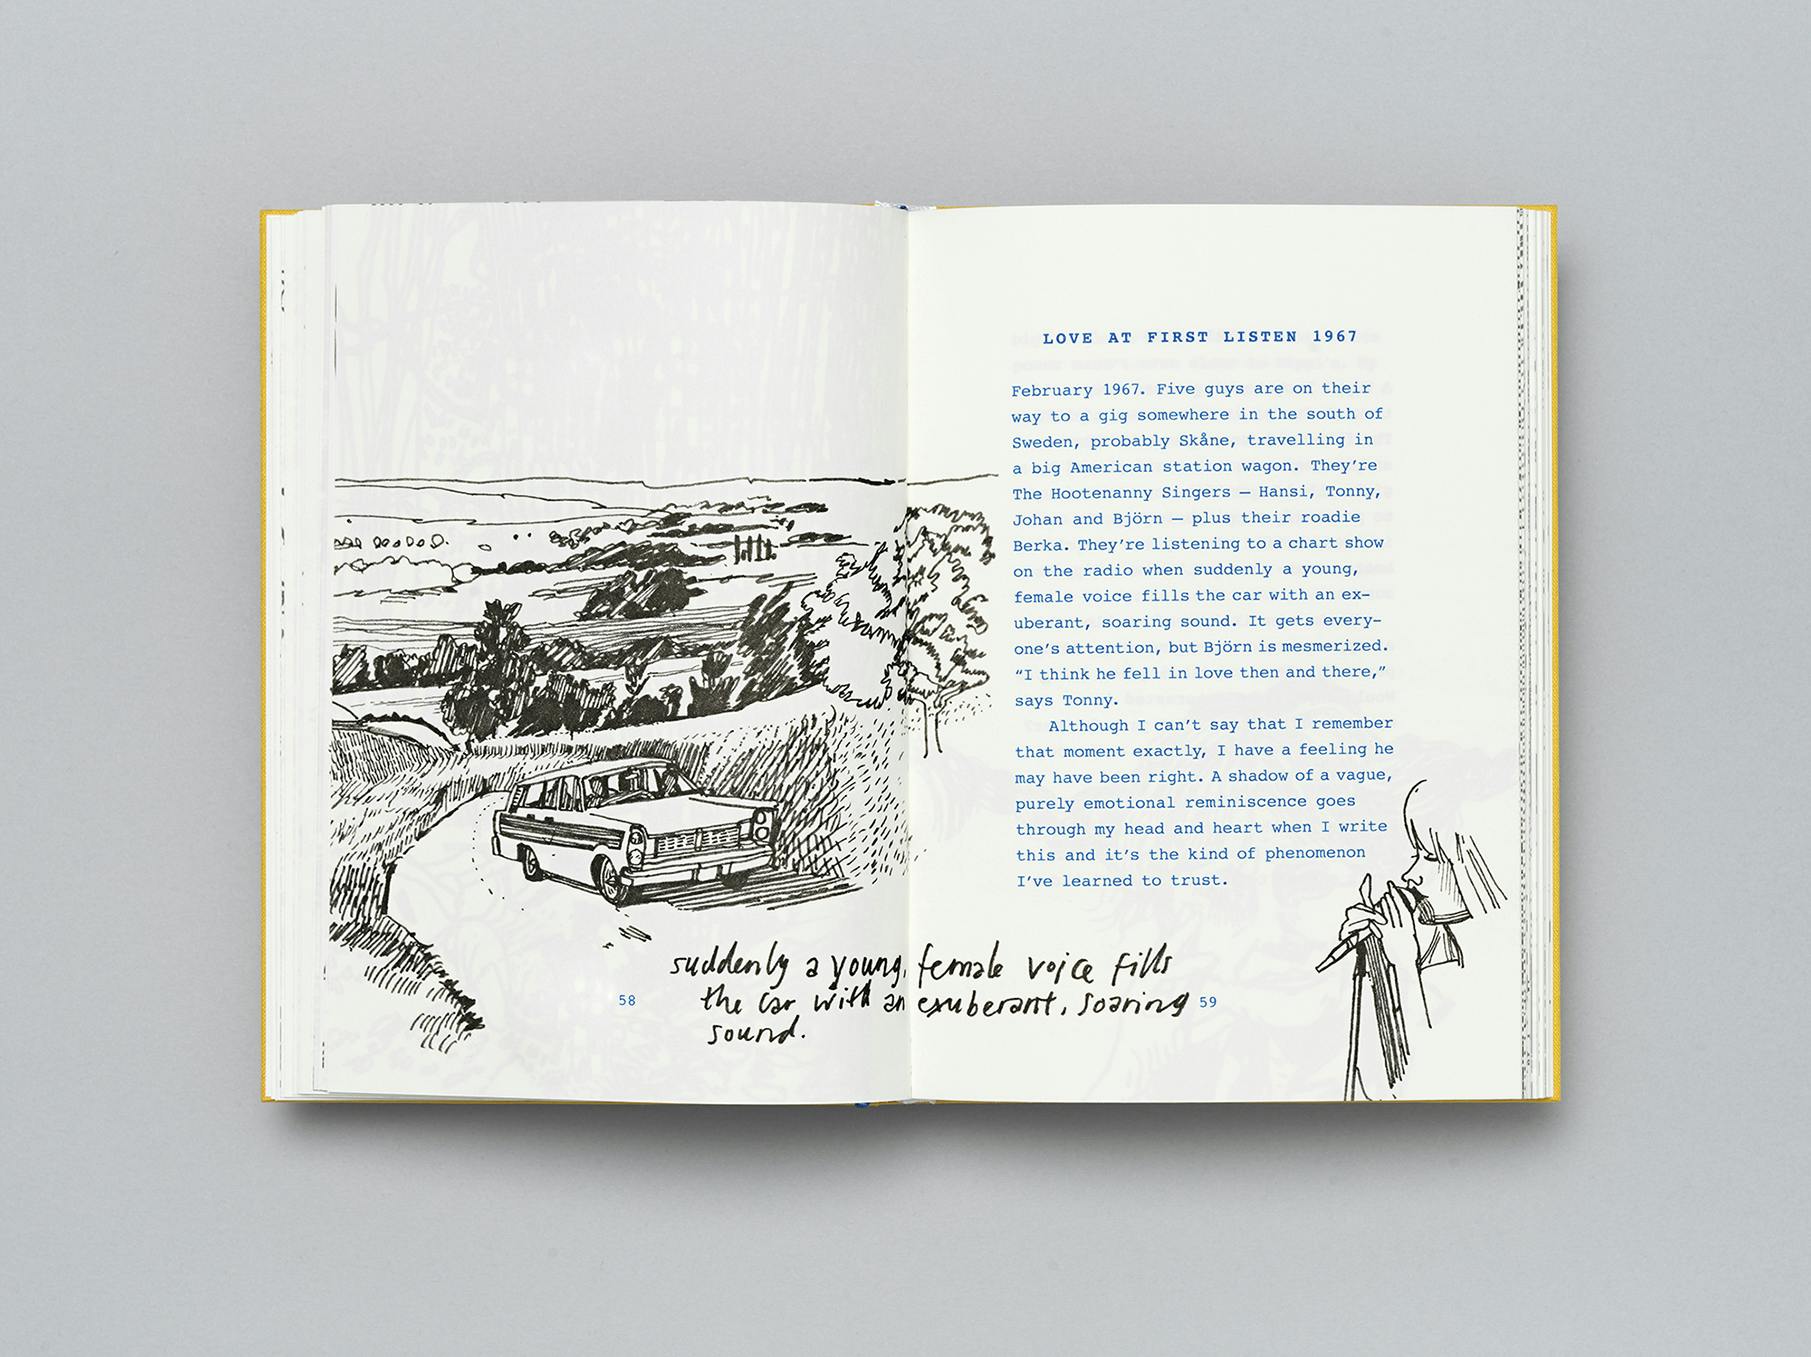 LOVE AT FIRST LISTEN 1967
February 1967. Five guys are on their
way to a gig somewhere in the south of
Sweden, probably Skåne, travelling in
a big American station wagon. They’re
The Hootenanny Singers — Hansi, Tonny,
Johan and Björn — plus their roadie
Berka. They’re listening to a chart show
on the radio when suddenly a young,
female voice fills the car with an ex–
uberant, soaring sound. It gets every–
one’s attention, but Björn is mesmerized.
“I think he fell in love then and there,”
says Tonny.
Although I can’t say that I remember
that moment exactly, I have a feeling he
may have been right. A shadow of a vague,
purely emotional reminiscence goes
through my head and heart when I write
this and it’s the kind of phenomenon
I’ve learned to trust.
suddenly a young, female voice fills
the car with an exuberant, soaring
sound.
58
59